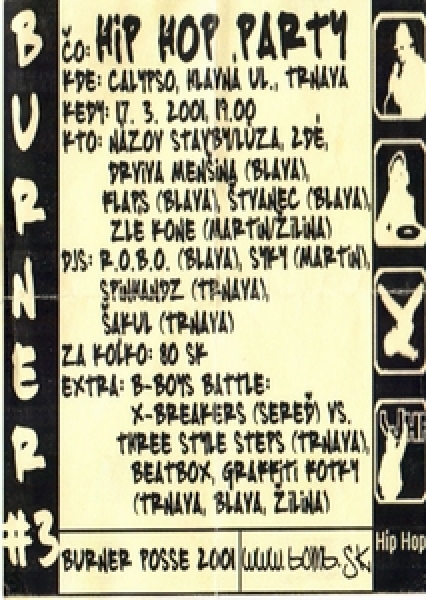 BURNER #3
ČO: HIP HOP PARTY
KDE: CALYPSO, HLAVNA UL., TRNAVA
KEDY: 17. 3. 2001, 19.00
KTO: NÁZOV STAVBY:LÚZA, 2DÉ,
DRVIVA MENŠINA (BLAVA),
FLAPS (BLAVA), ŠTVANEC (BLAVA),
ZLE KONE (MARTIN/ŽILINA)
DJS: R.O.B.O. (BLAVA), SYKY (MARTIN),
SPINHANDZ (TRNAVA),
ŠAKUL (TRNAVA)
ZA KOLKO: 80 SK
EXTRA: B-BOYS BATTLE:
X-BREAKERS (SEREĎ) VS.
THREE STYLE STEPS (TRNAVA),
BEATBOX, GRAFFITI FOTKY
(TRNAVA, BLAVA, ŽILINA)
Hip Hop
BURNER POSSE 2001
www.bomb.sk